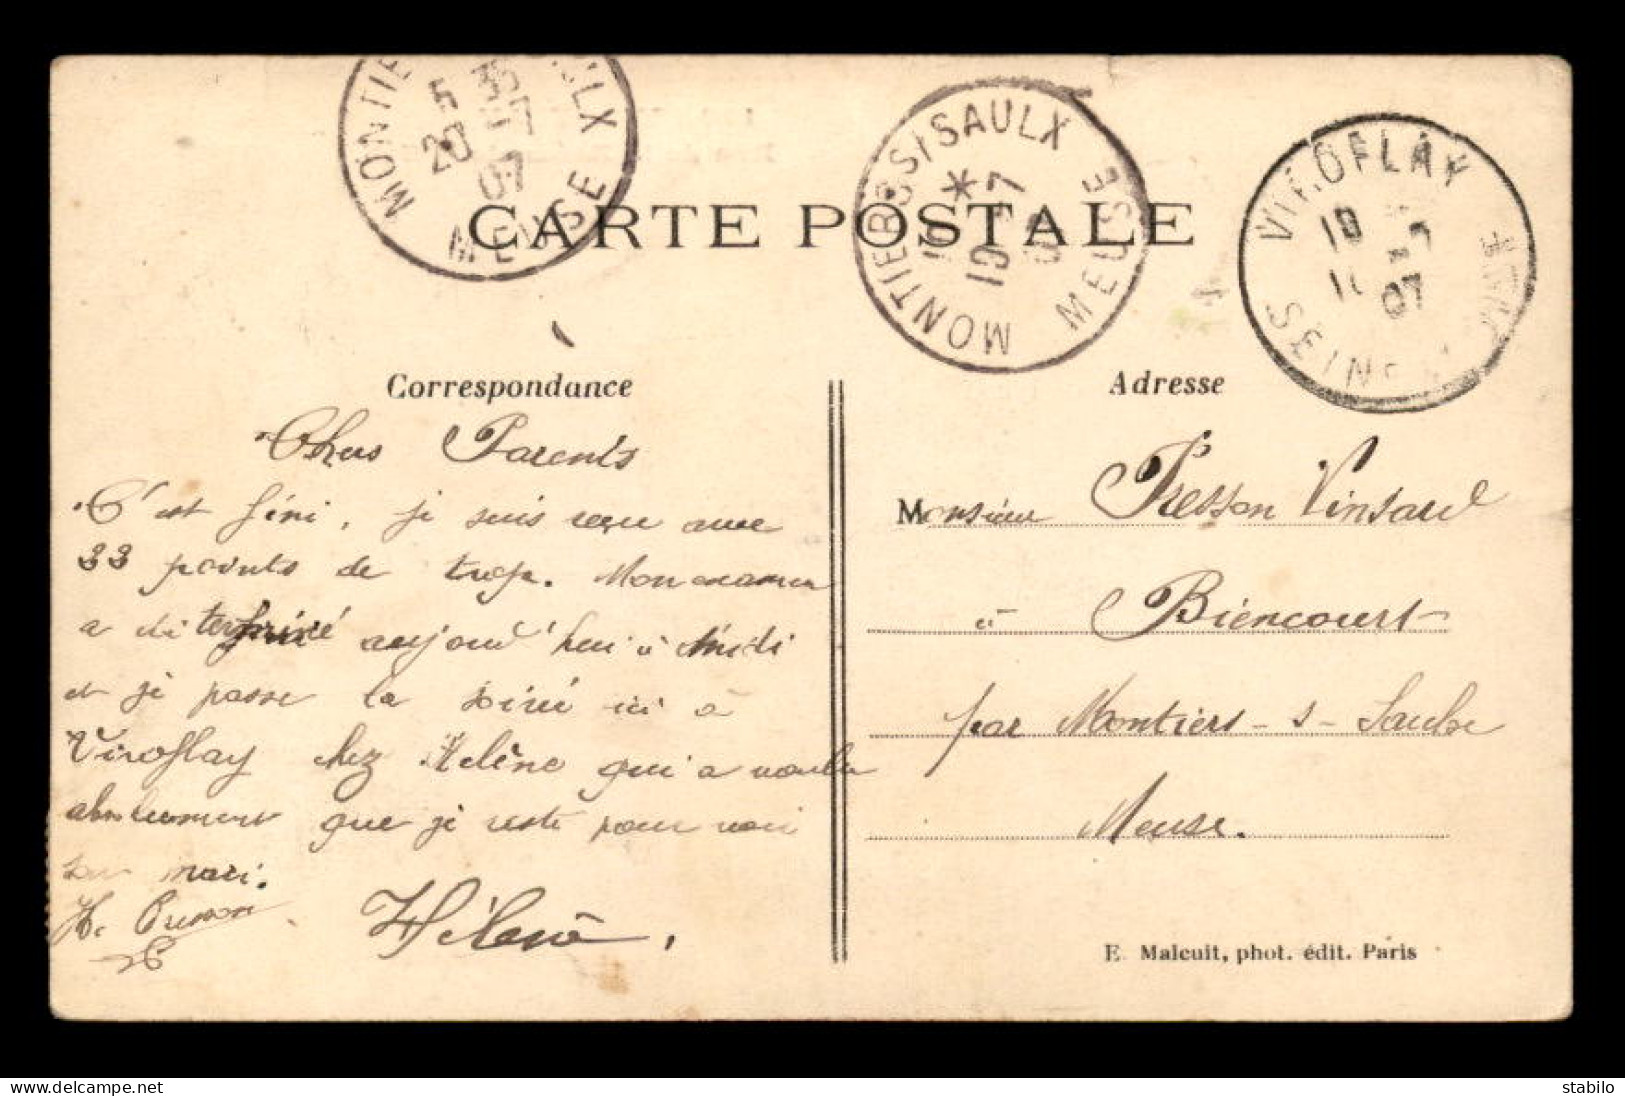 MONTIE ULX
MEUSE
5 35
20 7
07
MONTIERS S/SAULX
MEUSE
*
19 7
VIROFLAY
SEINE
07
CARTE POSTALE
Correspondance
Chers Parents
C'est fini, je suis reçu avec
33 points de trop. Mon examen
a été terminé aujourd'hui à Midi
et je passe la soiré ici à
Viroflay chez Hélène qui a voulu
absolument que je reste pour voir
son mari.
H. Presson
Hélène,
Adresse
Monsieur Presson Vinsard
à Biencourt
par Montiers-s-Saulx
Meuse.
E. Malcuit, phot. édit. Paris
stabilo